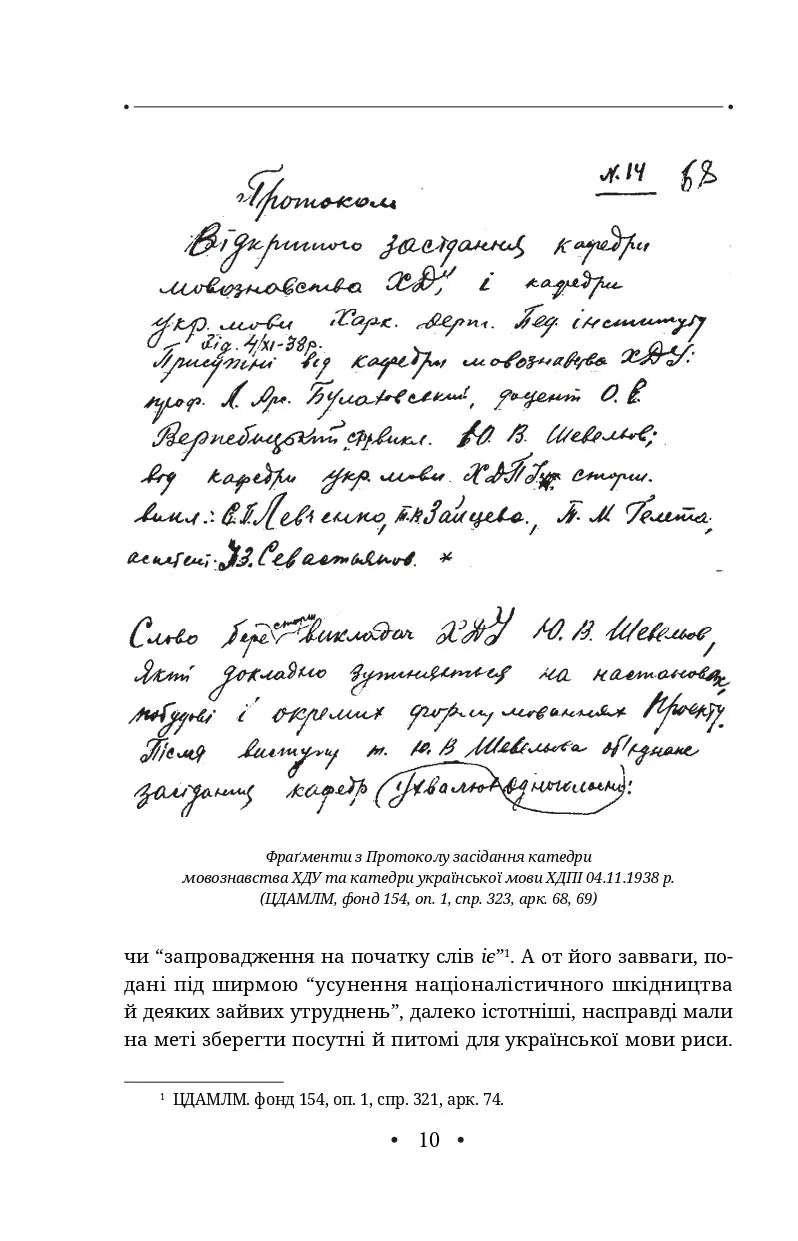 N. 14 68
Протокол
Відкритого засідання кафедри
мовознавства ХДУ, і кафедри
укр. мови Харк. держ. Пед. інституту
Від. 4/XI-38 р.
Присутні від кафедри мовознавства ХДУ:
проф. Л. Ар. Булаховський, доцент О. В.
ст. викл. Ю. В. Шевельов;
від кафедри укр. мови ХДПІ старш.
викл.: С. П. Левченко, Т. В. Зайцева, П. М. Гелета,
асистент. Севастьянов. *
Слово бере старш викладач ХДУ Ю. В. Шевельов,
який докладно зупиняється на настановах,
побудові і окремих формулюваннях Проекту.
Після виступу т. Ю. В Шевельова об'єднане
засідання кафедр ухвалює одноголосно:
Фраґменти з Протоколу засідання катедри
мовознавства ХДУ та катедри української мови ХДПІ 04.11.1938 р.
(ЦДАМЛМ, фонд 154, оп. 1, спр. 323, арк. 68, 69)
чи “запровадження на початку слів іє”¹. А от його завваги, по-
дані під ширмою “усунення націоналістичного шкідництва
й деяких зайвих утруднень”, далеко істотніші, насправді мали
на меті зберегти посутні й питомі для української мови риси.
¹ ЦДАМЛМ. фонд 154, оп. 1, спр. 321, арк. 74.
• 10 •